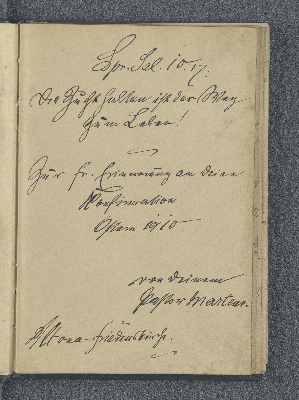 Spr. Sal. 10. 17:
Die Zucht halten ist der Weg
zum Leben!
Zur fr. Erinnerung an deine
Konfirmation
Ostern 1910
von deinem
Pastor Martens.
Altona-Friedenskirche.